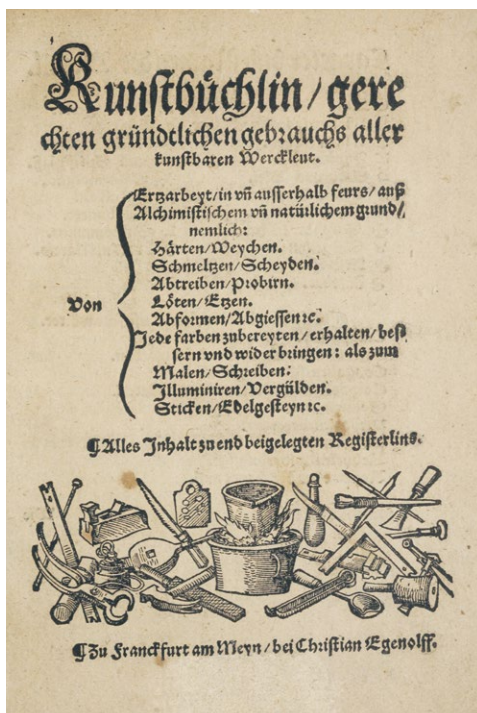 Kunstbüchlin/gere
chten gründtlichen gebrauchs aller
kunstbaren Werckleut.
Ertzarbeyt/in vñ ausserhalb feurs/auß
Alchimistischem vñ natürlichem grund/
nemlich:
Härten/Weychen.
Schmeltzen/Scheyden.
Abtreiben/Probirn.
Von
Löten/Etzen.
Abformen/Abgiessen ꝛc.
Jede farben zubereyten/erhalten/bess
sern vnd wider bringen: als zum
Malen/Schreiben.
Illuminiren/Vergülden.
Sticken/Edelgesteyn ꝛc.
¶Alles Inhalt zu end beigelegten Registerlins.
¶Zu Franckfurt am Meyn/bei Christian Egenolff.